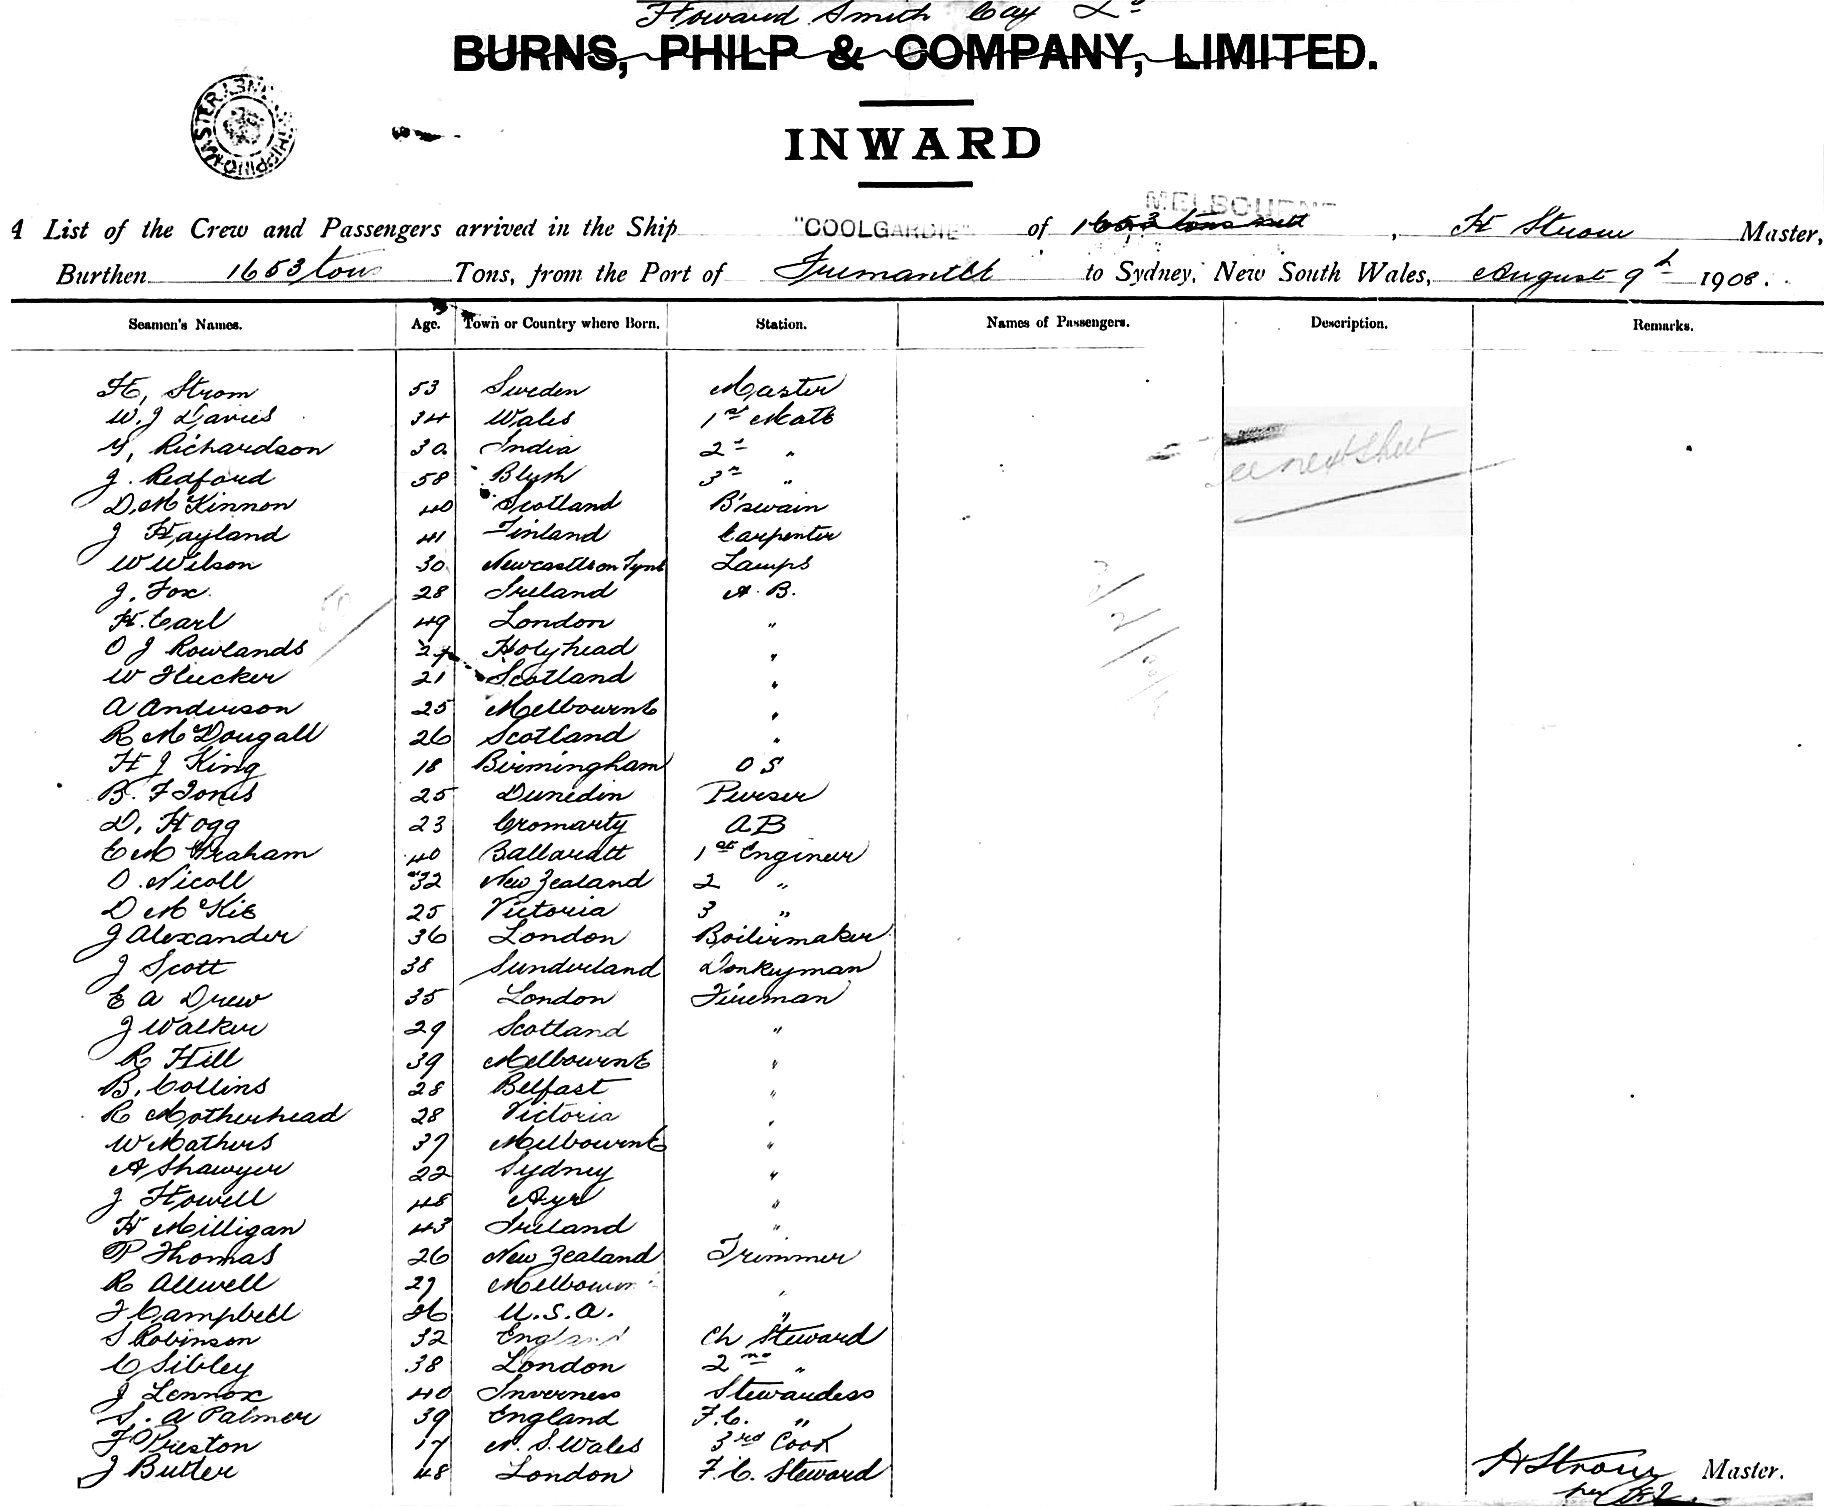 Howard Smith Coy Ld
BURNS, PHILP & COMPANY, LIMITED.
INWARD
MELBOURNE
A List of the Crew and Passengers arrived in the Ship "COOLGARDIE" of 1653 tons nett, H Strom Master,
Burthen 1653 tons Tons, from the Port of Fremantle to Sydney, New South Wales, August 9th 1908.
Seamen's Names. Age. Town or Country where Born. Station. Names of Passengers. Description. Remarks.
H, Strom 53 Sweden Master
W. J Davies 34 Wales 1st Mate
Richardson 30 India 2nd "
J. Redford 58 Blyth 3rd "
D. McKinnon 40 Scotland B'swain
J Hayland 41 Finland Carpenter
W Wilson 30 Newcastle on Tyne Lamps
J. Fox. 28 Ireland A. B.
H. Carl 49 London "
O J Rowlands 27 Holyhead "
W Hucker 21 Scotland "
A Anderson 25 Melbourne "
R McDougall 26 Scotland "
H J King 18 Birmingham O S
B. F Jones 25 Dunedin Purser
D. Hogg 23 Cromarty AB
E McGraham 40 Ballaratt 1st Engineer
O. Nicoll 32 New Zealand 2 "
D McKie 25 Victoria 3 "
J Alexander 36 London Boilermaker
J Scott 38 Sunderland Donkeyman
E A Drew 35 London Fireman
J Walker 29 Scotland "
R Hill 39 Melbourne "
B. Collins 28 Belfast "
R Motherhead 28 Victoria "
W Mathers 37 Melbourne "
A Shawyer 22 Sydney "
J Howell 48 Ayr "
H Milligan 43 Ireland "
P Thomas 26 New Zealand Trimmer
R Allwell 27 Melbourne "
J Campbell 26 U.S.A. "
S Robinson 32 England Ch Steward
C Sibley 38 London 2nd "
J Lennox 40 Inverness Stewardess
S. A Palmer 39 England F.C. "
F Preston 17 N. S. Wales 3rd Cook
J Butler 48 London F. C. Steward
see next sheet
H Strom Master.